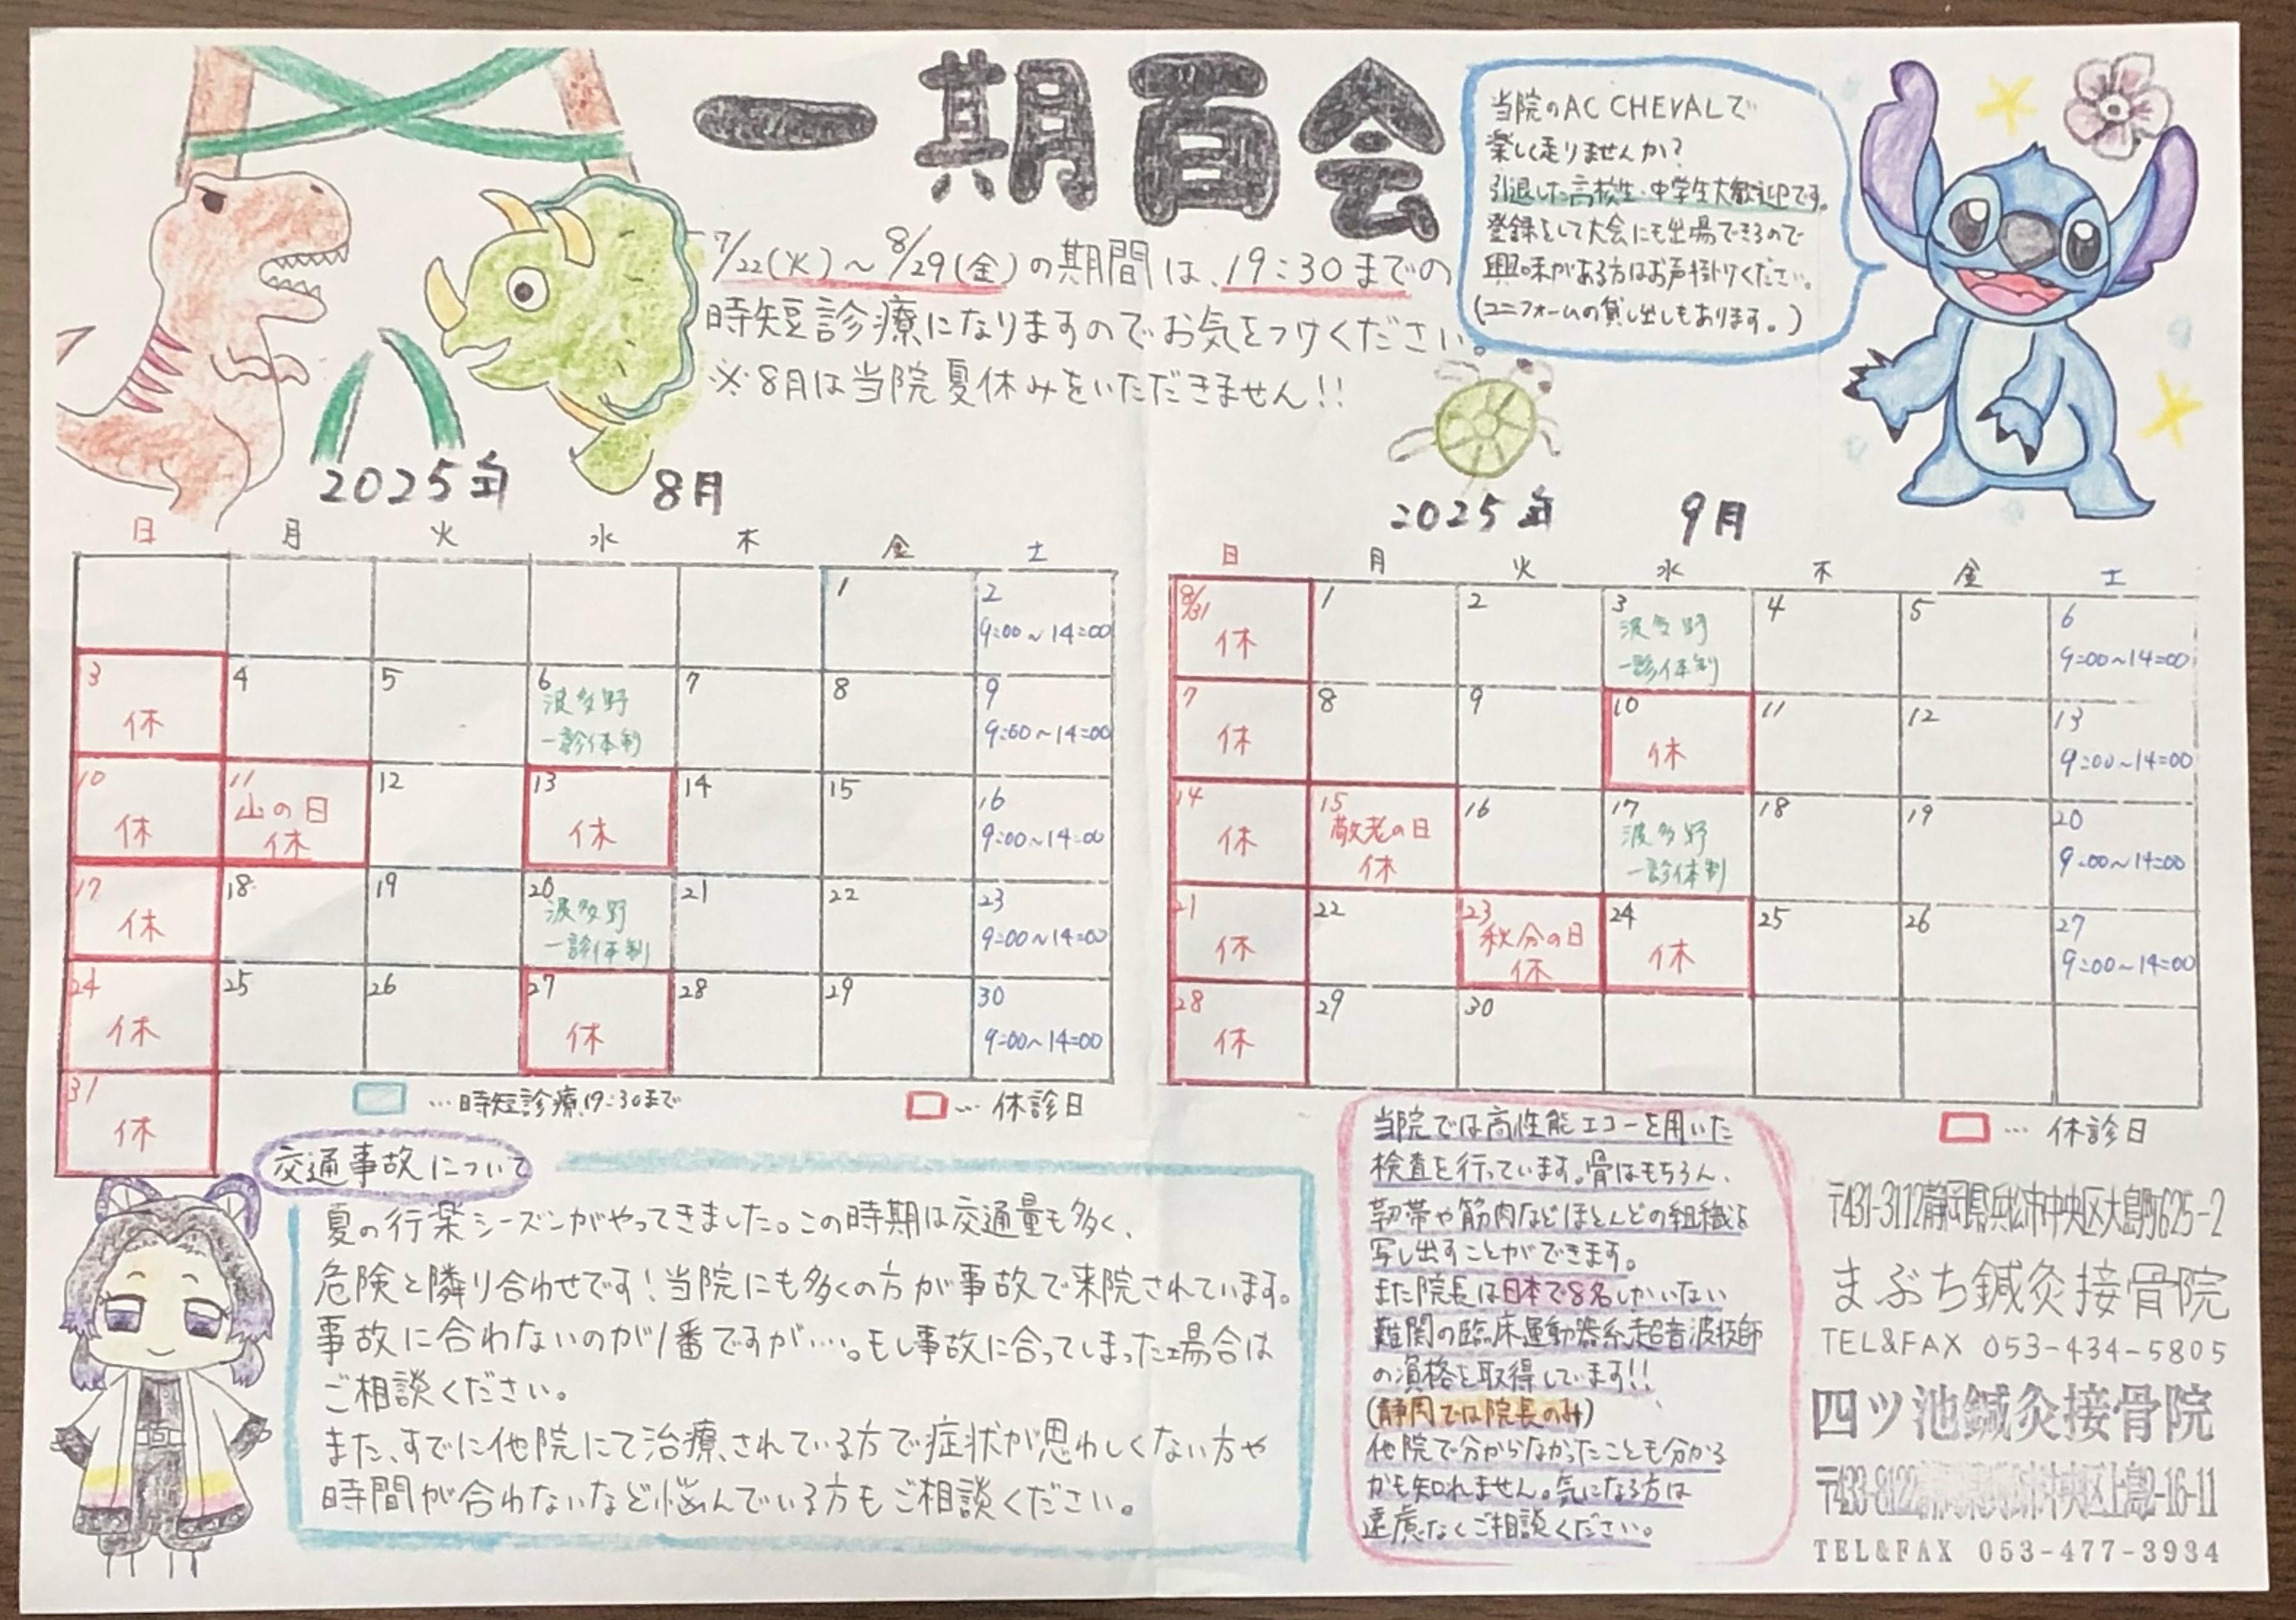 一期百会
7/22(火)～8/29(金)の期間は、19:30までの
時短診療になりますのでお気をつけください。
※8月は当院夏休みをいただきません!!
当院のAC CHEVALで
楽しく走りませんか?
引退した高校生・中学生大歓迎です。
登録をして大会にも出場できるので
興味がある方はお声掛けください。
(ユニフォームの貸し出しもあります。)
2025年 8月
日 月 火 水 木 金 土
1 2
9:00～14:00
3 4 5 6 7 8 9
休 波多野 9:00～14:00
一診体制
10 11 12 13 14 15 16
休 山の日 休 9:00～14:00
休
17 18 19 20 21 22 23
休 波多野 9:00～14:00
一診体制
24 25 26 27 28 29 30
休 休 9:00～14:00
31
休
…時短診療19:30まで
… 休診日
2025年 9月
日 月 火 水 木 金 土
8/31 1 2 3 4 5 6
休 波多野 9:00～14:00
一診体制
7 8 9 10 11 12 13
休 休 9:00～14:00
14 15 16 17 18 19 20
休 敬老の日 波多野 9:00～14:00
休 一診体制
21 22 23 24 25 26 27
休 秋分の日 休 9:00～14:00
休
28 29 30
休
… 休診日
交通事故について
夏の行楽シーズンがやってきました。この時期は交通量も多く、
危険と隣り合わせです!当院にも多くの方が事故で来院されています。
事故に合わないのが1番ですが…。もし事故に合ってしまった場合は
ご相談ください。
また、すでに他院にて治療されている方で症状が思わしくない方や
時間が合わないなど悩んでいる方もご相談ください。
当院では高性能エコーを用いた
検査を行っています。骨はもちろん、
靭帯や筋肉などほとんどの組織を
写し出すことができます。
また院長は日本で8名しかいない
難関の臨床運動器系超音波技師
の資格を取得しています!!
(静岡では院長のみ)
他院で分からなかったことも分かる
かも知れません。気になる方は
遠慮なくご相談ください。
〒431-3112静岡県浜松市中央区大島町625-2
まぶち鍼灸接骨院
TEL&FAX 053-434-5805
四ツ池鍼灸接骨院
〒433-8122静岡県浜松市中央区上島2-16-11
TEL&FAX 053-477-3934